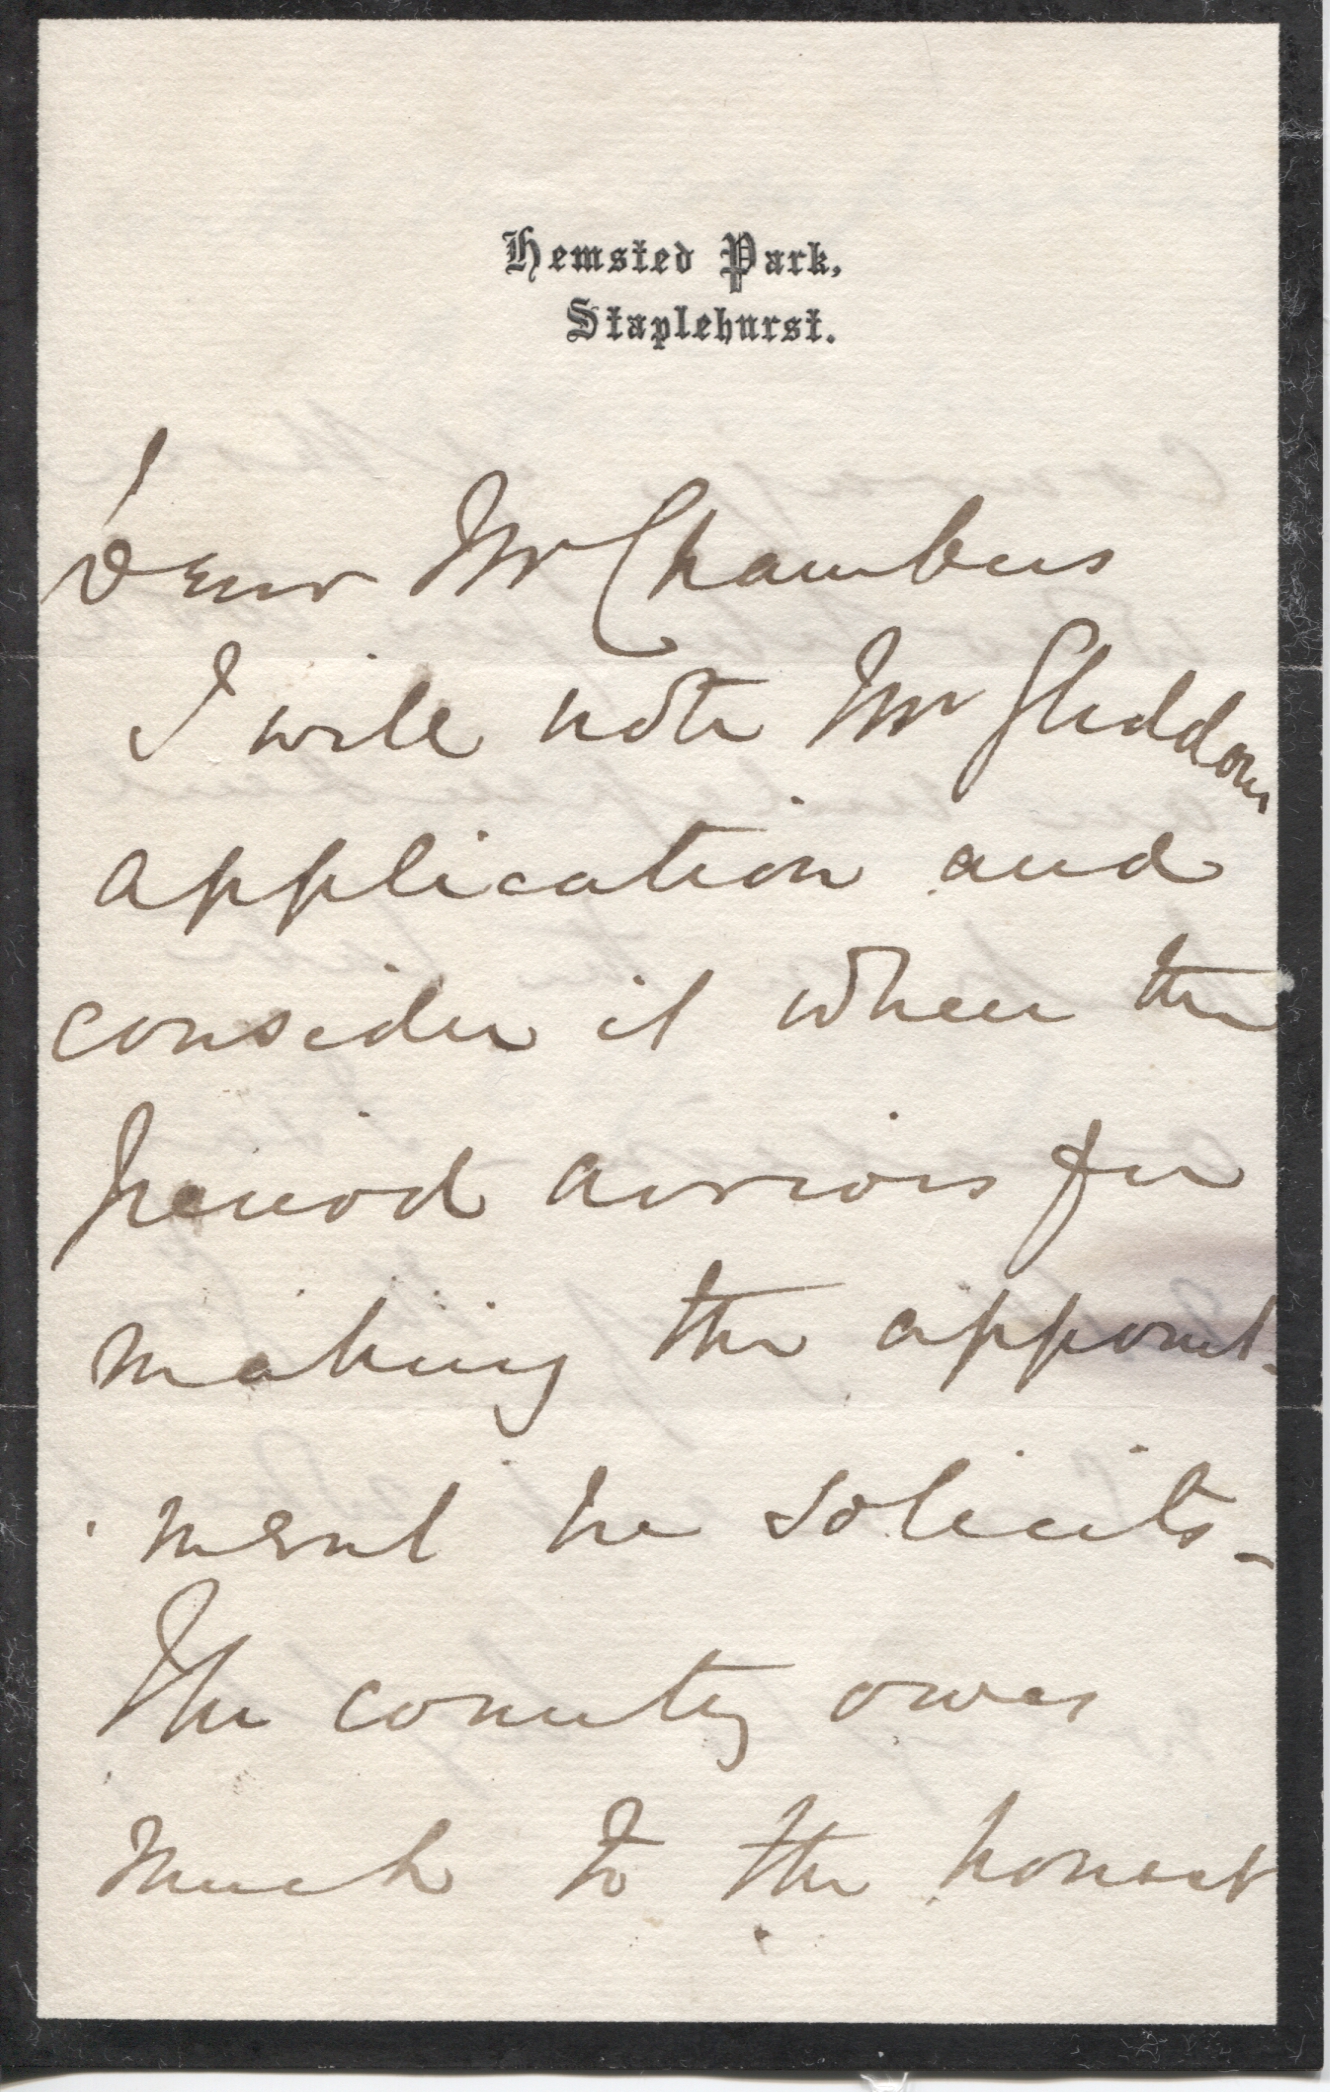 Hemsted Park,
Staplehurst.
Dear Mr Chambers
I will note Mr Gliddons
application and
consider it when the
period arrives for
making the appoint-
ment he solicits -
The country owes
much to the honest